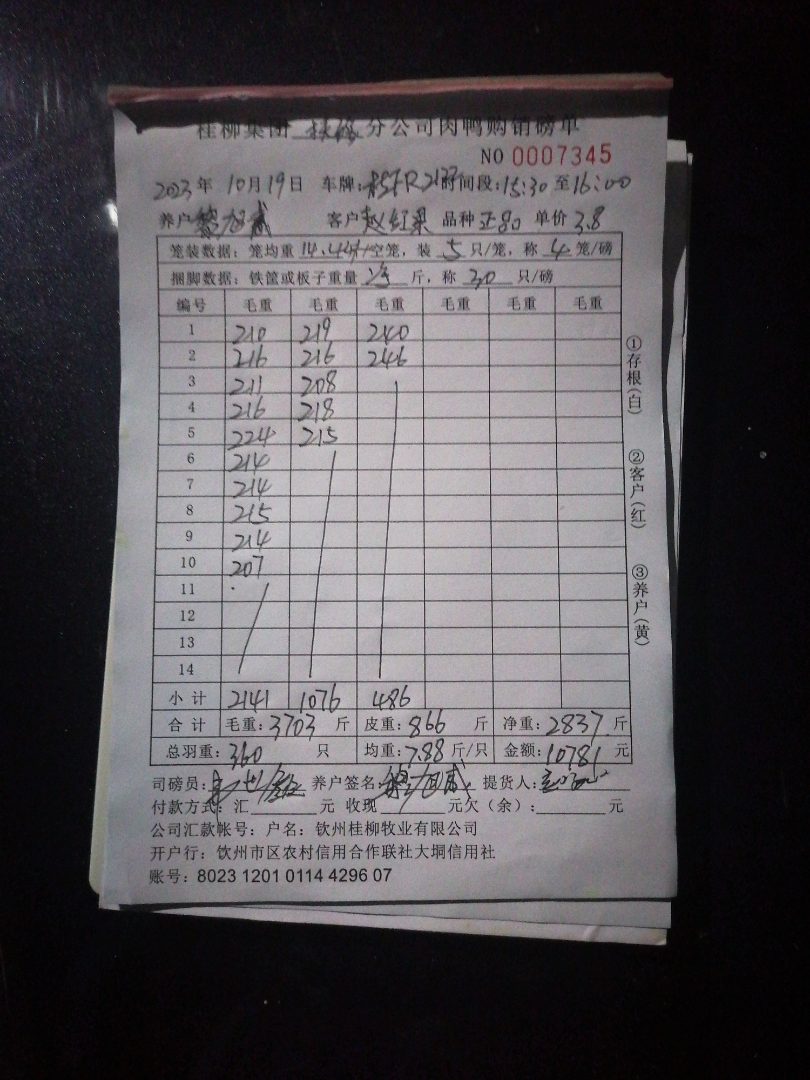 桂柳集团 扶绥 分公司肉鸭购销磅单
NO 0007345
2023年 10月19日 车牌: 时间段:15:30至16:00
养户 客户 赵红梁 品种 正80 单价 3.8
笼装数据:笼均重 14.44斤/空笼,装 5 只/笼,称 4 笼/磅
捆脚数据:铁筐或板子重量 斤,称 30 只/磅
编号 毛重 毛重 毛重 毛重 毛重 毛重
1 210 219 240
2 216 216 246
3 211 208
4 216 218
5 224 215
6 214
7 214
8 215
9 214
10 207
11
12
13
14
小计 2141 1076 486
合计 毛重:3703 斤 皮重:866 斤 净重:2837 斤
总羽重:360 只 均重:7.88 斤/只 金额:10781 元
司磅员: 养户签名: 提货人:
付款方式:汇 元 收现 元欠(余): 元
公司汇款帐号:户名:钦州桂柳牧业有限公司
开户行:钦州市区农村信用合作联社大垌信用社
账号:8023 1201 0114 4296 07
①存根(白)
②客户(红)
③养户(黄)